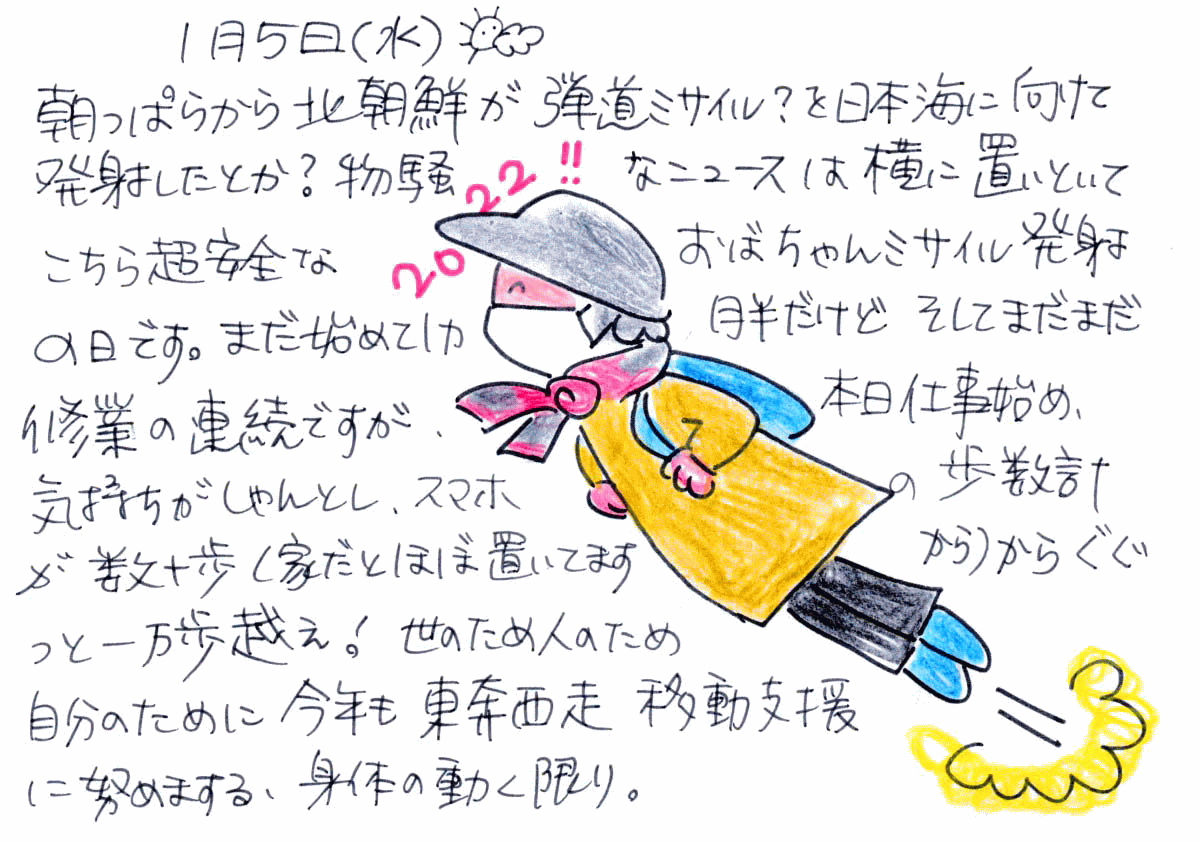 1月5日(水)
朝っぱらから北朝鮮が弾道ミサイル?を日本海に向けて
発射したとか?物騒なニュースは横に置いといて
2022!!
こちら超安全なおばちゃんミサイル発射
の日です。まだ始めて1か月半だけど そしてまだまだ
修業の連続ですが、本日仕事始め、
気持ちがしゃんとし、スマホの歩数計
が数十歩(家だとほぼ置いてますから)からぐぐ
っと一万歩越え! 世のため人のため
自分のために 今年も東奔西走 移動支援
に努めまする、身体の動く限り。